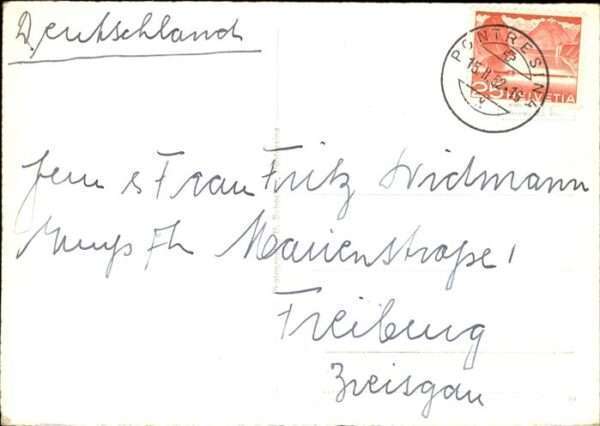 Deutschland
PONTRESINA
15.II.52.-18
25 HELVETIA
Herrn & Frau Fritz Widmann
Marienstraße 1
Freiburg
Breisgau